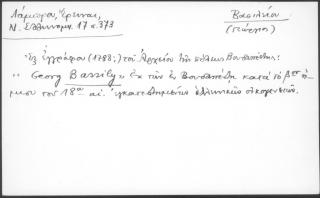 Λάμπρου, Ἔρευναι,
Ν. Ἑλληνομν. 17 σ. 373
Βασιλείου
(Γεώργιος)
Ἐξ ἐγγράφου (1788;) τοῦ Ἀρχείου τῆς πόλεως Βουδαπέστης:
"Georg Bassily" ἐκ τῶν ἐν Βουδαπέστῃ κατὰ τὸ βον ἥ-
μισυ τοῦ 18ου αἰ. ἐγκατεστημένων ἑλληνικῶν οἰκογενειῶν.